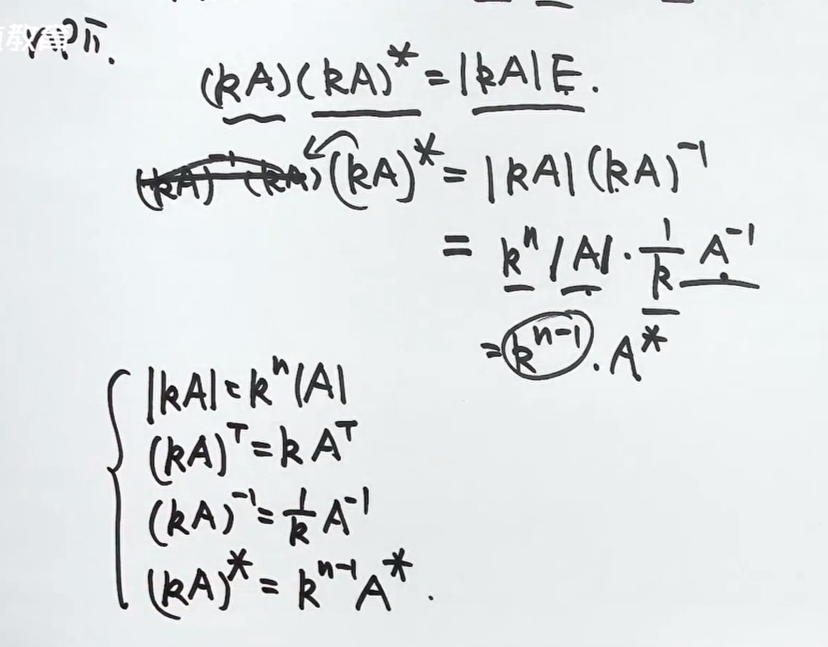 (kA)(kA)* = |kA|E.
(kA)* = |kA|(kA)⁻¹
= kⁿ|A| · 1/k A⁻¹
= kⁿ⁻¹ · A*
|kA| = kⁿ|A|
(kA)ᵀ = kAᵀ
(kA)⁻¹ = 1/k A⁻¹
(kA)* = kⁿ⁻¹A*.